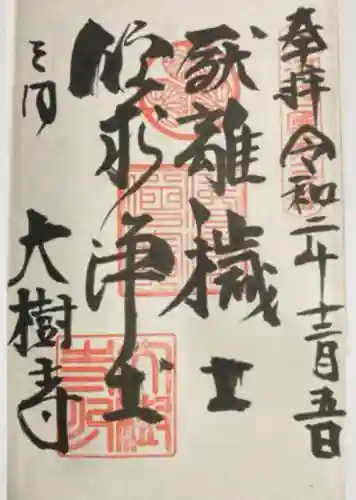 奉拝 令和二年十二月五日
厭離穢土
欣求浄土
三河
大樹寺